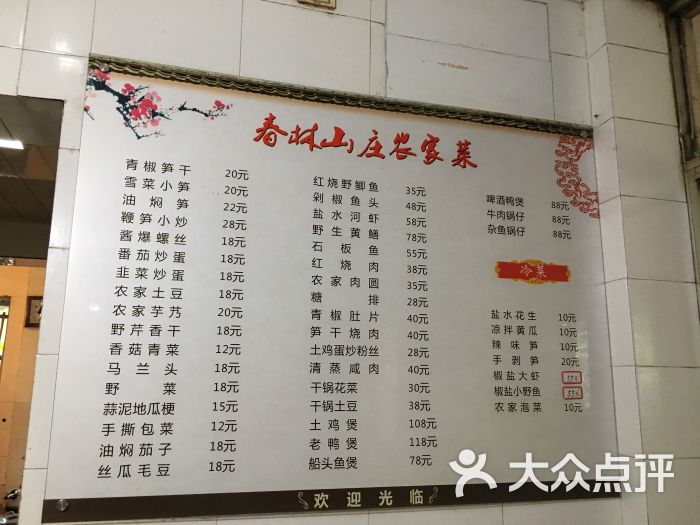 春林山庄农家菜
青椒笋干 20元
雪菜小笋 20元
油焖笋 22元
鞭笋小炒 28元
酱爆螺丝 18元
番茄炒蛋 18元
韭菜炒蛋 18元
农家土豆 18元
农家芋艿 20元
野芹香干 18元
香菇青菜 12元
马兰头 18元
野菜 18元
蒜泥地瓜梗 15元
手撕包菜 12元
油焖茄子 18元
丝瓜毛豆 18元
红烧野鲫鱼 35元
剁椒鱼头 48元
盐水河虾 58元
野生黄鳝 78元
石板鱼 55元
红烧肉 38元
农家肉圆 35元
糖排 28元
青椒肚片 40元
笋干烧肉 40元
土鸡蛋炒粉丝 28元
清蒸咸肉 40元
干锅花菜 30元
干锅土豆 38元
土鸡煲 108元
老鸭煲 118元
船头鱼煲 78元
啤酒鸭煲 88元
牛肉锅仔 88元
杂鱼锅仔 88元
冷菜
盐水花生 10元
凉拌黄瓜 10元
辣味笋 10元
手剥笋 20元
椒盐大虾
椒盐小野鱼
农家泡菜 10元
欢迎光临
大众点评